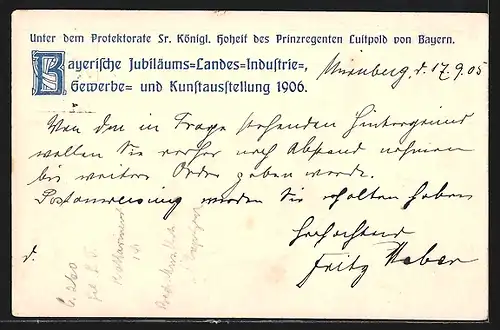 Unter dem Protektorate Sr. Königl. Hoheit des Prinzregenten Luitpold von Bayern.
Bayerische Jubiläums=Landes=Industrie=,
Gewerbe= und Kunstausstellung 1906.
Nürnberg, d. 17.9.05
Von den in Frage stehenden Hintergrund
wollen Sie vorher noch Abstand nehmen
bis weitere Order geben werde.
Postanweisung werden Sie erhalten haben
hochachtend
Fritz Weber
d.